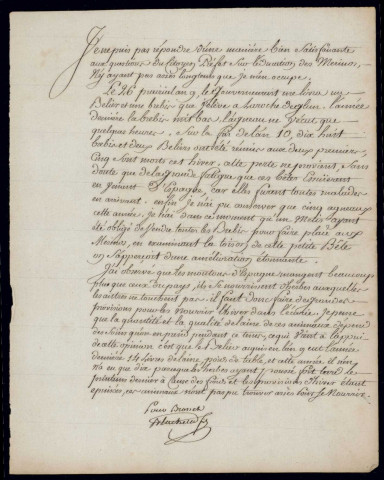 Je ne puis pas répondre d'une manière bien satisfaisante
aux questions du citoyen Préfet sur l'éducation des Merinos,
N'y ayant pas assés longtems que je m'en occupe.
Le 26 prairial an 9, le Gouvernement me livra un
Belier et une brebis que j'élève a Laroche l'année
dernière la brebis mit bas l'agneau ne vécut que
quelques heures. Sur la fin de l'an 10, dix huit
brebis et deux Beliers ont été réunis aux deux premiers
Cinq sont morts cet hiver. cette perte ne provient sans
doute que de la grande fatigue que ces bêtes essuièrent
en venant d'Espagne, car elles furent toutes malades
en arrivant. enfin je n'ai pu conserver que cinq agneaux
cette année. Je n'ai dans ce moment qu'un métis ayant
été obligé de vendre toutes les Brebis pour faire place aux
Merinos, en examinant la toison de cette petite Bête
on s'apperçoit d'une amélioration étonnante.
J'ai observé que les moutons d'Espagne mangent beaucoup
plus que ceux du pays, ils se nourrissent d'herbes auxquelles
les autres ne touchent pas. il faut donc faire des grandes
provisions pour les nourrir l'hiver dans l'écurie. Je pense
que la quantité et la qualité de laine de ces animaux dépend
des soins qu'on en prend pendant ce tems, ce qui vient a l'appui
de cette opinion c'est que le Belier avait l'année
dernière 14 livres de laine, poids de table, et cette année il n'en
n'a eu que dix parceque les herbes ayant poussé fort tard le
printems dernier a cause des froids et les provisions d'hiver étant
épuisées, ces animaux n'ont pas pu trouver assés pour se nourrir.